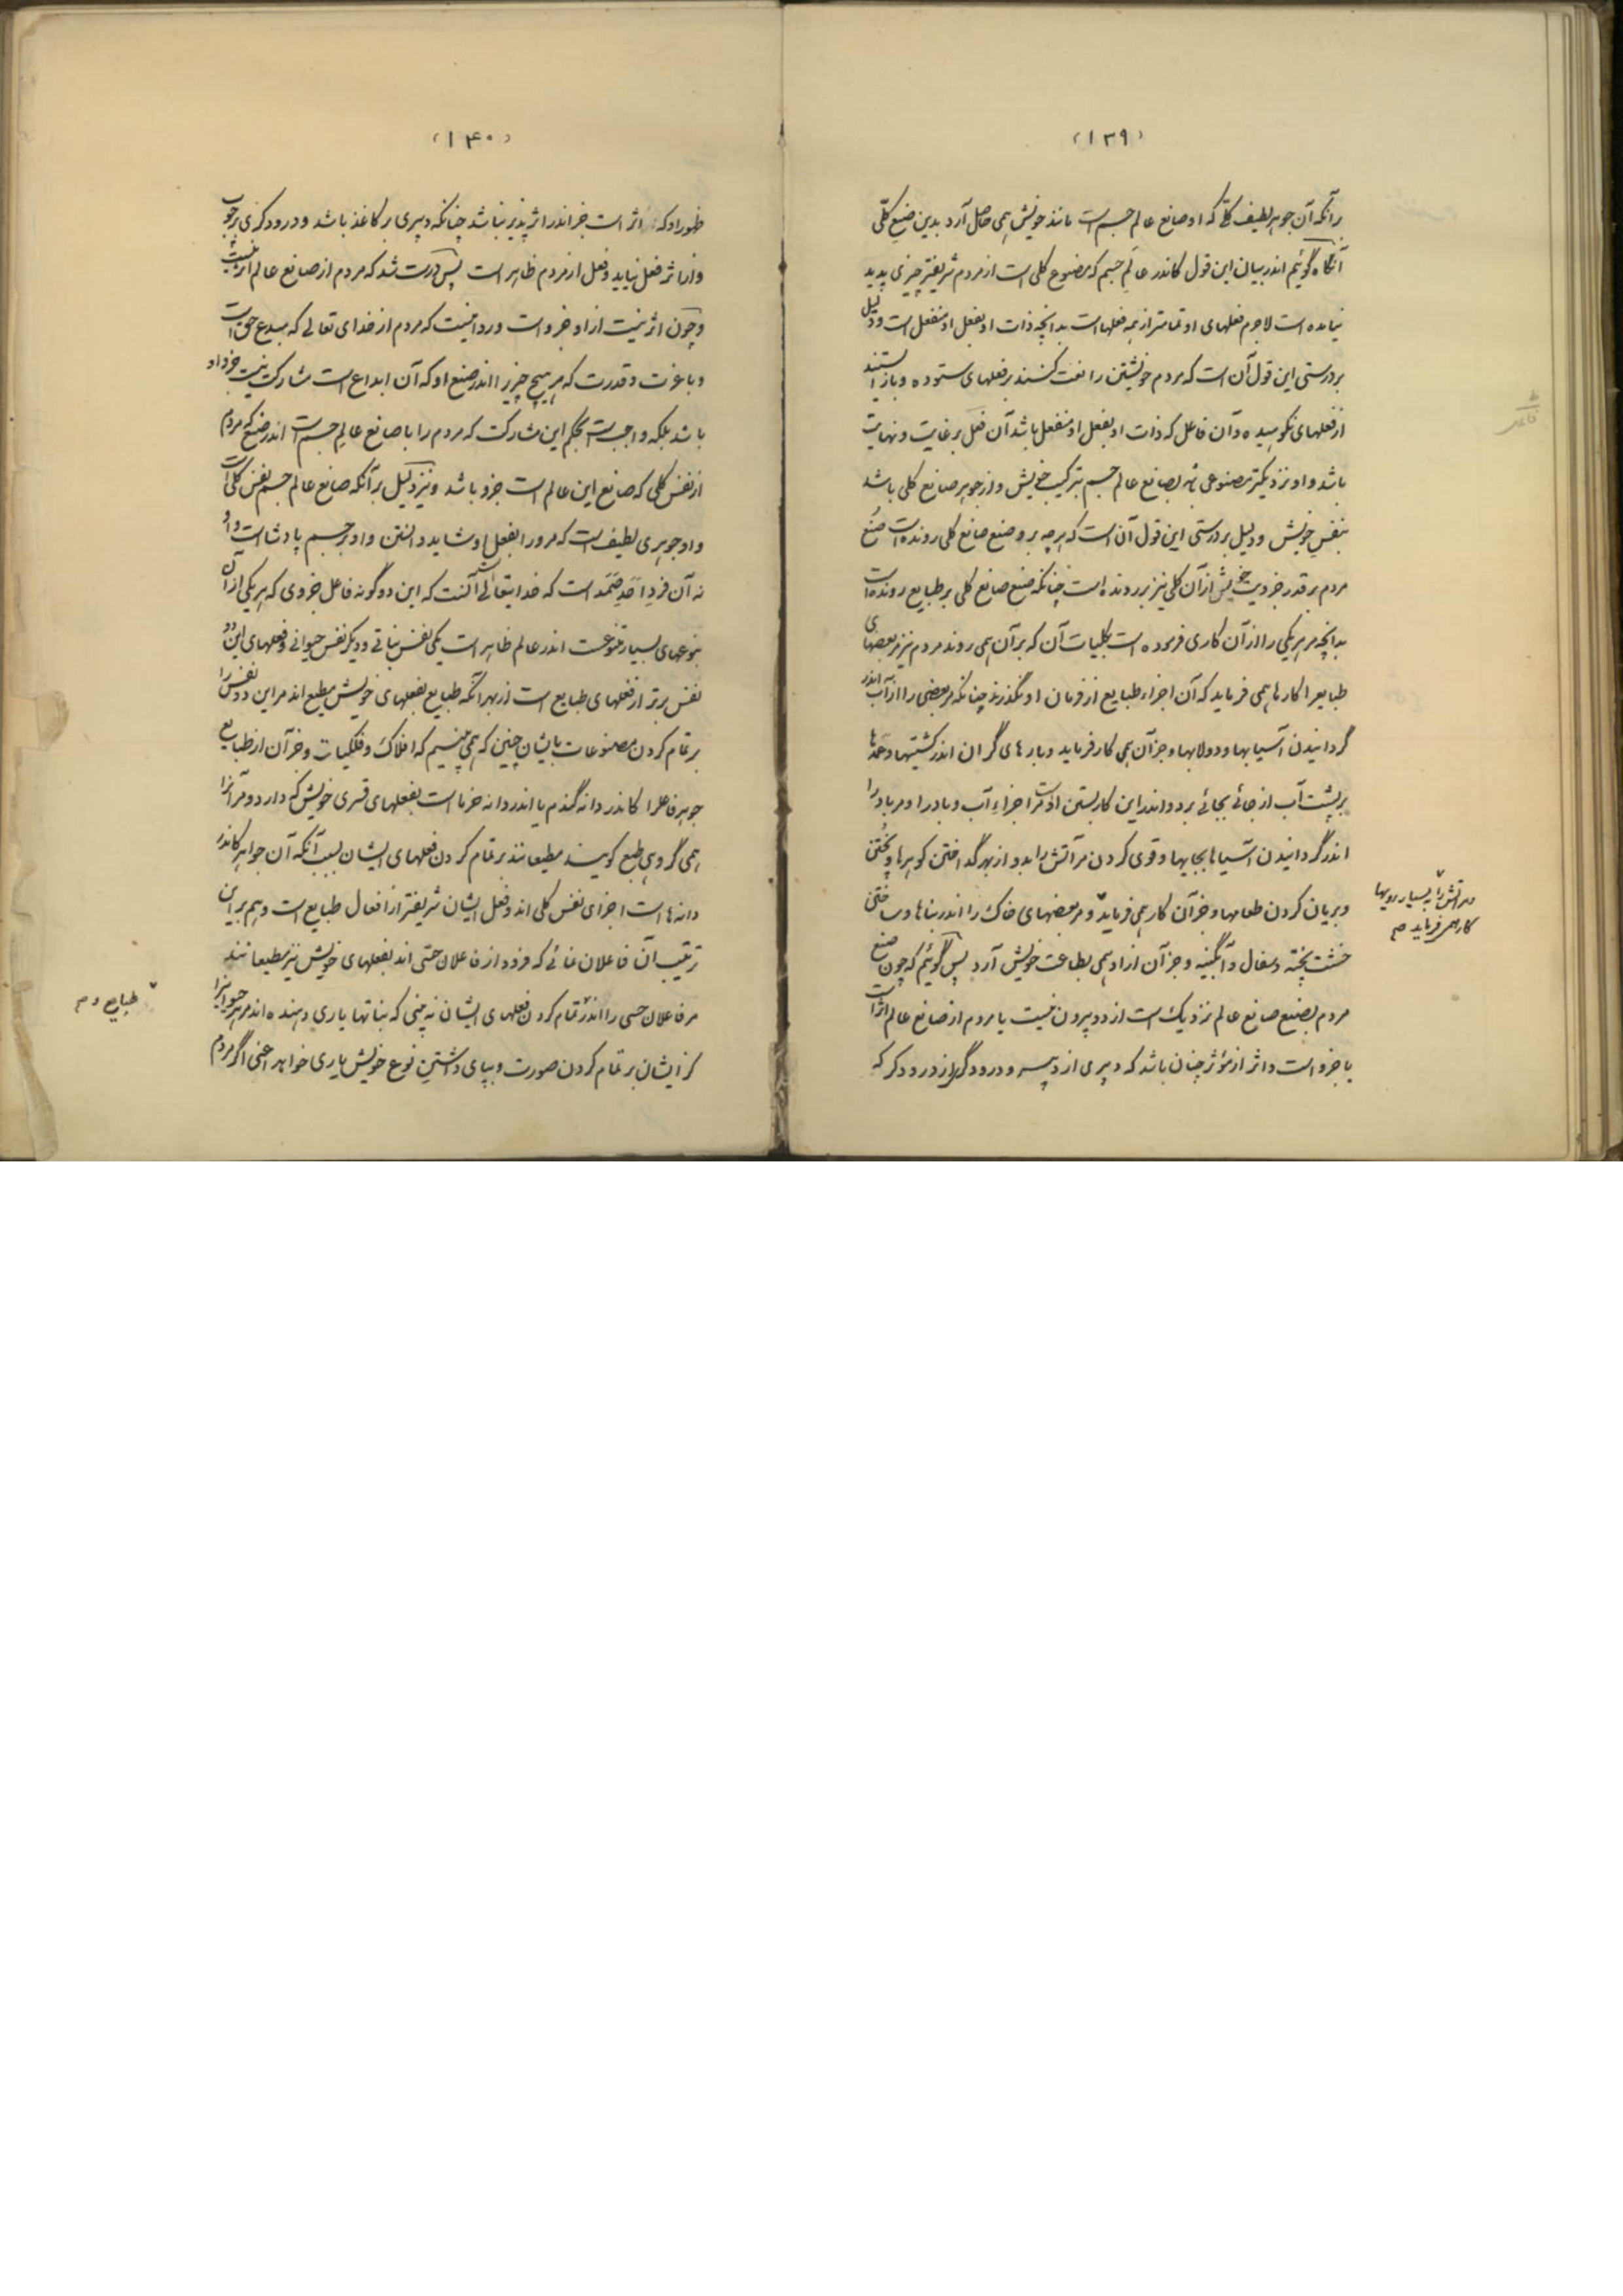 (۱۳۹)
برآنکه آن جوهر لطیف کلّی که او صانع عالم جسم است مانند خویش همی حاصل آرد بدین صنع کلّی
آنگاه گوئیم اندر بیان این قول کاندر عالَم جسم که مصنوع کلی است از مردم شریفتر چیزی پدید
نیامده است لاجرم فعلهای او تمامتر از همه فعلهاست بدانچه ذات او بفعل او منفعل است ودلیل
بردرستی این قول آن است که مردم خویشتن را نعت کنند برفعلهای ستوده وباز ایستند
از فعلهای نکوهیده وآن فاعل که ذات او بفعل او منفعل باشد آن فعل برغایت ونهایت
باشد واو نزدیکتر مصنوعی باشد بصانع عالم جسم بترکیب خویش واز جوهر صانع کلی باشد
بنفس خویش ودلیل بردرستی این قول آن است که هرچه برو صنع صانع کلی رونده است صُنع
مردم بر قدر جزویت خویش از آن کلی نیز برو رونده است چنانکه صنع صانع کلی برطبایع رونده است
بدانچه مرهریکی را از آن کاری فرموده است بکلیات آن که بر آن همی روند مردم نیز مر بعضهای
طبایع را کارها همی فرماید که آن اجزاء طبایع از فرمان او نگذرند چنانکه مر بعضی را از آب اندر
گردانیدن آسیابها ودولابها وجز آن همی کار فرماید وبارهای گران اندر کشتیها وعمدها
بر پشت آب از جائی بجائی برد واندر این کار بستن اوست مر اجزاء آب وباد را ومرباد را
اندر گردانیدن آسیاها بجایها وقوی کردن مر آتش را بدو از بهر گداختن گوهرها وپختن
وبریان کردن طعامها وجز آن کار همی فرماید ومر بعضهای خاک را اندر بناها وساختن
خشت پخته وسفال وآبگینه وجز آن از او همی بطاعت خویش آرد پس گوئیم که چون صنع
مردم بصنع صانع عالم نزدیک است از دو بیرون نیست یا مردم از صانع عالم اثر است
یا جزو است واثر از مؤثر چنان باشد که دبیری از دبیر ودرودگری از درودگر که
مر آتش را بسیار رویها
کار همی فرماید صح
(۱۴۰)
ظهور او که اثر است جز اندر اثر پذیر نباشد چنانکه دبیری بر کاغذ باشد ودرودگری برچوب
واز اثر فعل نیاید وفعل از مردم ظاهر است پس درست شد که مردم از صانع عالم اثر نیست
وچون اثر نیست از او جزو است وروا نیست که مردم از خدای تعالی که مبدع حق است
وباعزت وقدرت که مر هیچ چیز را اندر صنع او که آن ابداع است مشارکت نیست جزو او
باشد بلکه واجب است بحکم این مشارکت که مردم را با صانع عالم جسم است اندر صنع که مردم
از نفس کلی که صانع این عالم است جزو باشد ونیز دلیل برآنکه صانع عالم جسم نفس کلی است
واو جوهری لطیف است که مر ورا بفعل او شاید دانستن واو بر جسم پادشاست واو
نه آن فرد اَحَدِ صَمَد است که خدایتعالی است آنست که این دو گونه فاعل جزوی که هریکی از آن
بنوعهای بسیار متنوعست اندر عالم ظاهر است یکی نفس نباتی ودیگر نفس حیوانی وفعلهای این دو
نفس برتر از فعلهای طبایع است از بهر آنکه طبایع بفعلهای خویش مطیع اند مر این دو نفس را
بر تمام کردن مصنوعات بایشان چنین که همی بینیم که افلاک وفلکیات وجز آن از طبایع
جوهر فاعل را کاندر دانه گندم یا اندر دانه خرما است بفعلهای قسری خویش که دارد ومر آنرا
همی گروهی طبع گویند مطیعانند بر تمام کردن فعلهای ایشان بسبب آنکه آن جواهر کاندر
دانه ها است اجزای نفس کلی اند وفعل ایشان شریفتر از افعال طبایع است وهم براین
ترتیب آن فاعلان نمائی که فرود از فاعلان حسّی اند بفعلهای خویش نیز مطیعانند
مر فاعلان حسی را اندر تمام کردن فعلهای ایشان نه بینی که نباتها یاری دهنده اند مر هر حیوانی را
کز ایشان بر تمام کردن صورت وبپای داشتنِ نوع خویش یاری خواهد اعنی اگر مردم
طبایع و صح